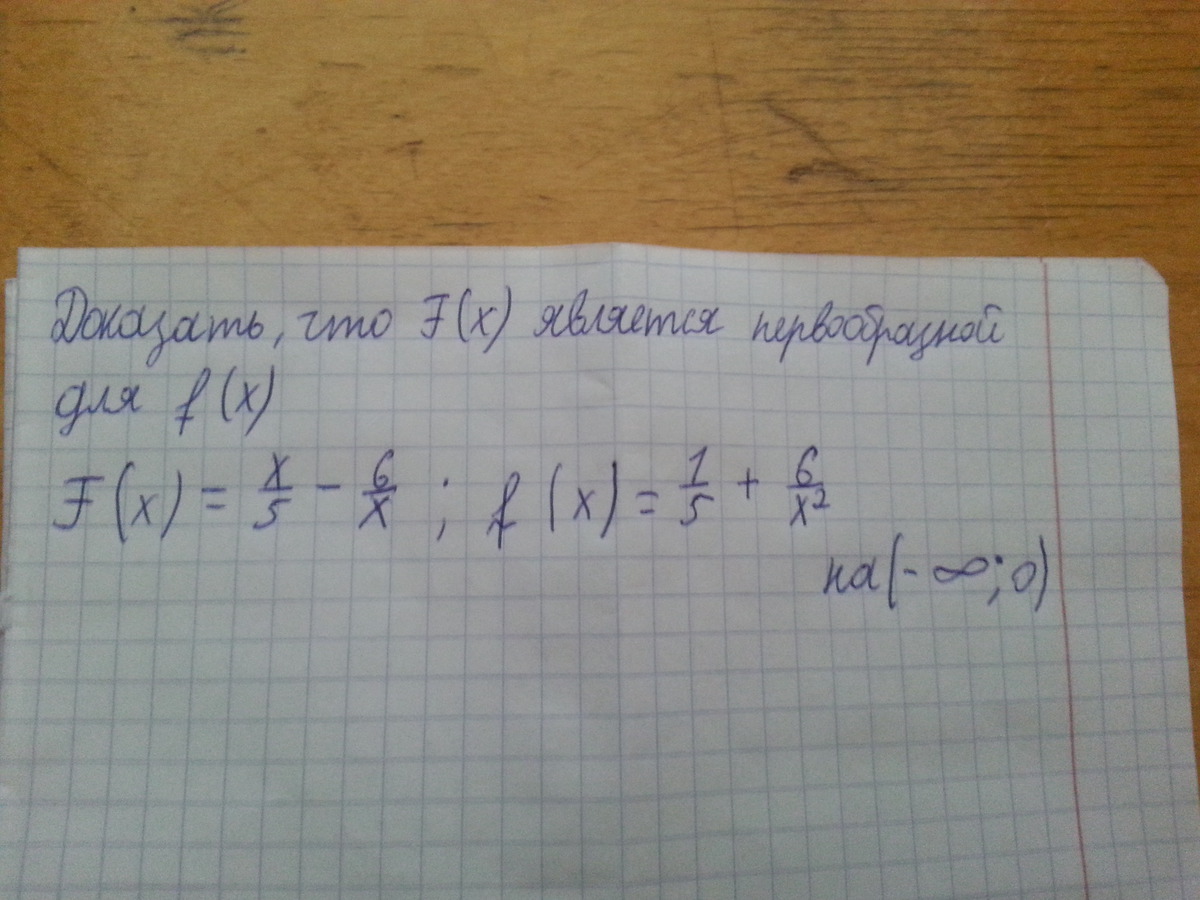 Доказать, что F(x) является первообразной
для f(x)
F(x) = x/5 - 6/x ; f(x) = 1/5 + 6/x²
на (-∞; 0)